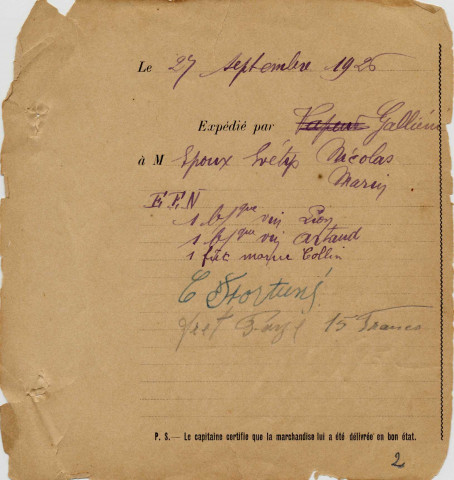 Le 27 septembre 1926
Expédié par Vapeur Galliéni
à M Epoux Nicolas
Marin
E.F.N
1 bque vin Lion
1 bque vin Artaud
1 fût marque Collin
E Fortuné
fret Payé 15 Francs
P. S.— Le capitaine certifie que la marchandise lui a été délivrée en bon état.
2